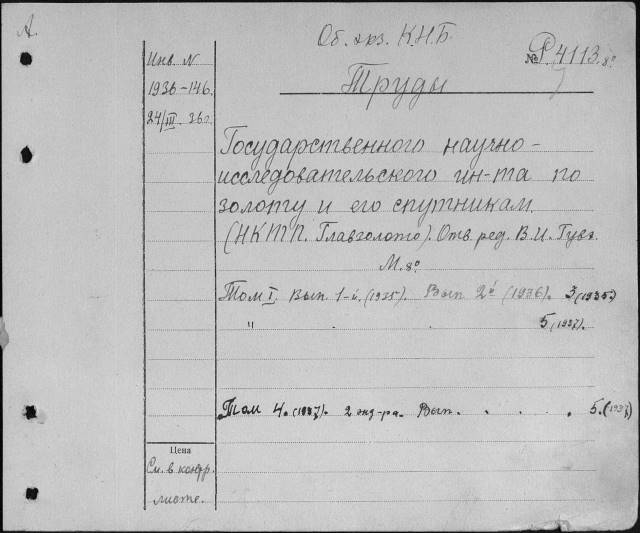 А.
Об. экз. К.Н.Б.
№ Р. 4113. 8º
Инв. N
1936-146.
24/III. 36 г.
Труды
Государственного научно-
исследовательского ин-та по
золоту и его спутникам
(НКТП. Главзолото). Отв. ред. В.И.
М. 8º
Том I. Вып. 1-й. (1935). Вып 2й (1936). 3 (1935)
" 5 (1937).
Том 4. (1937). 2 экз-ра. Вып. . . . 5. (1937)
Цена
См. в контр.
листе.